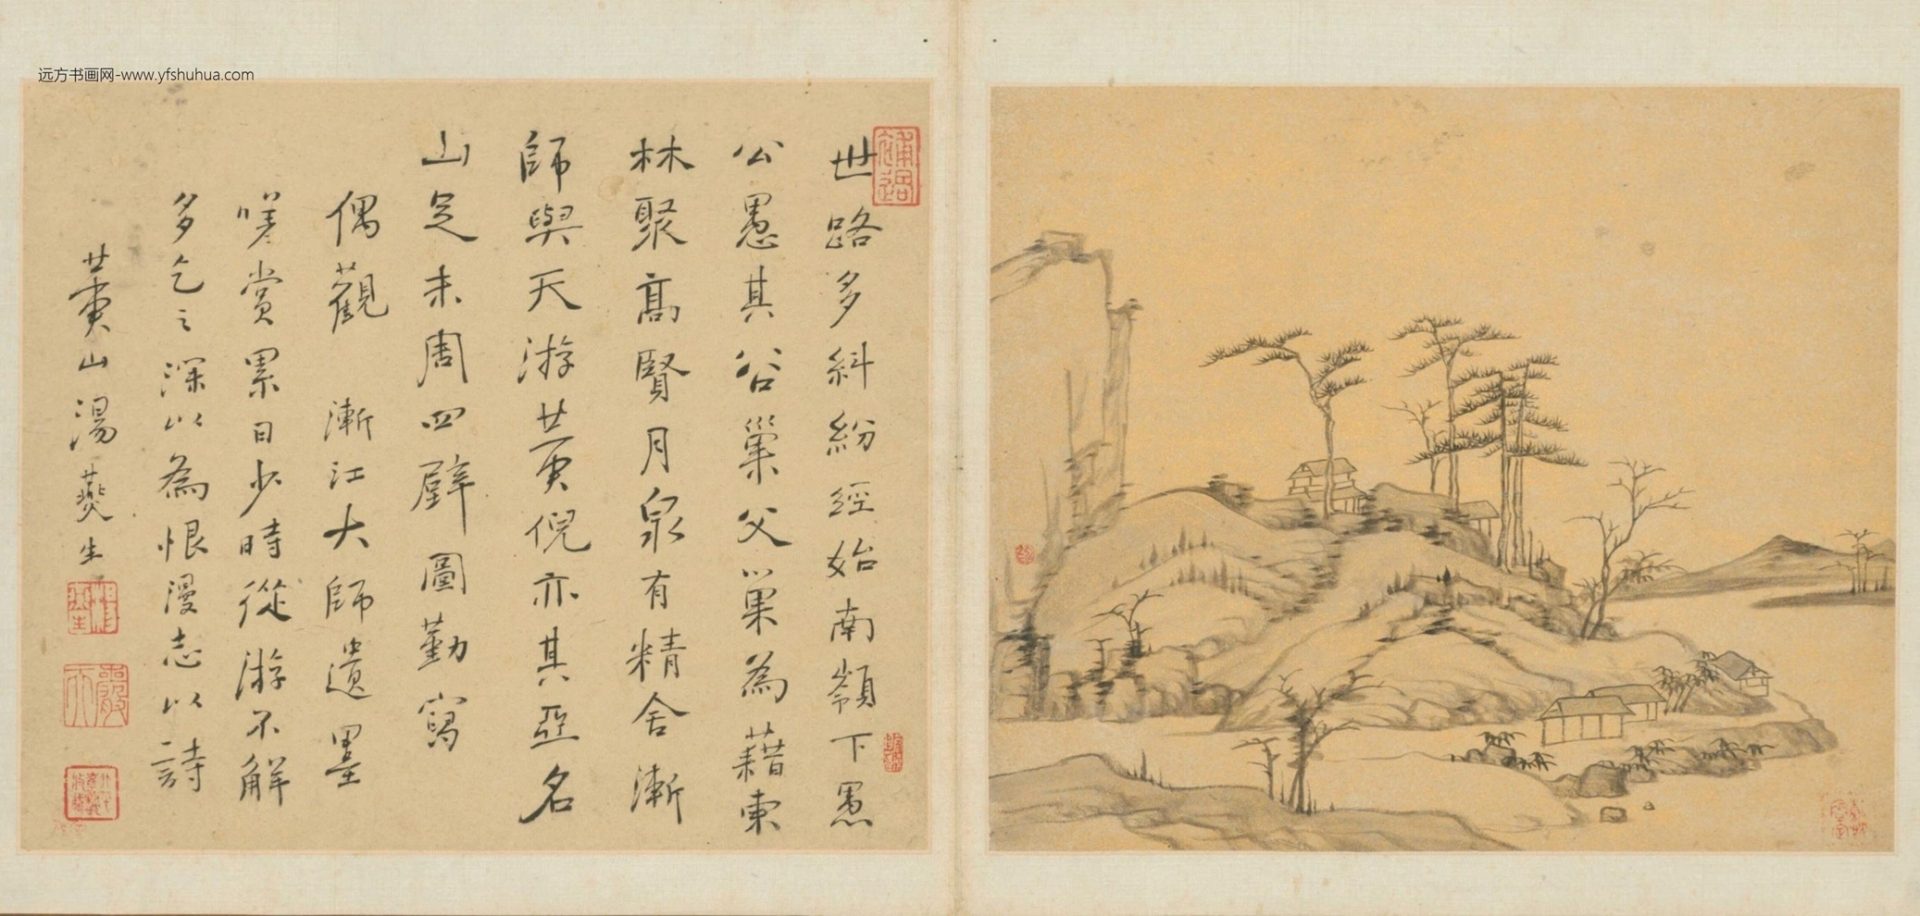 远方书画网-www.yfshuhua.com
世路多糾紛經始南嶺下愚
公愚其谷巢父巢為藉東
林聚高賢月泉有精舍漸
師與天游黃倪亦其亞名
山足未周四壁圖勤寫
偶觀 漸江大師遺墨
嘆賞累日少時從游不解
多乞之深以為恨漫志以詩
黃山湯燕生